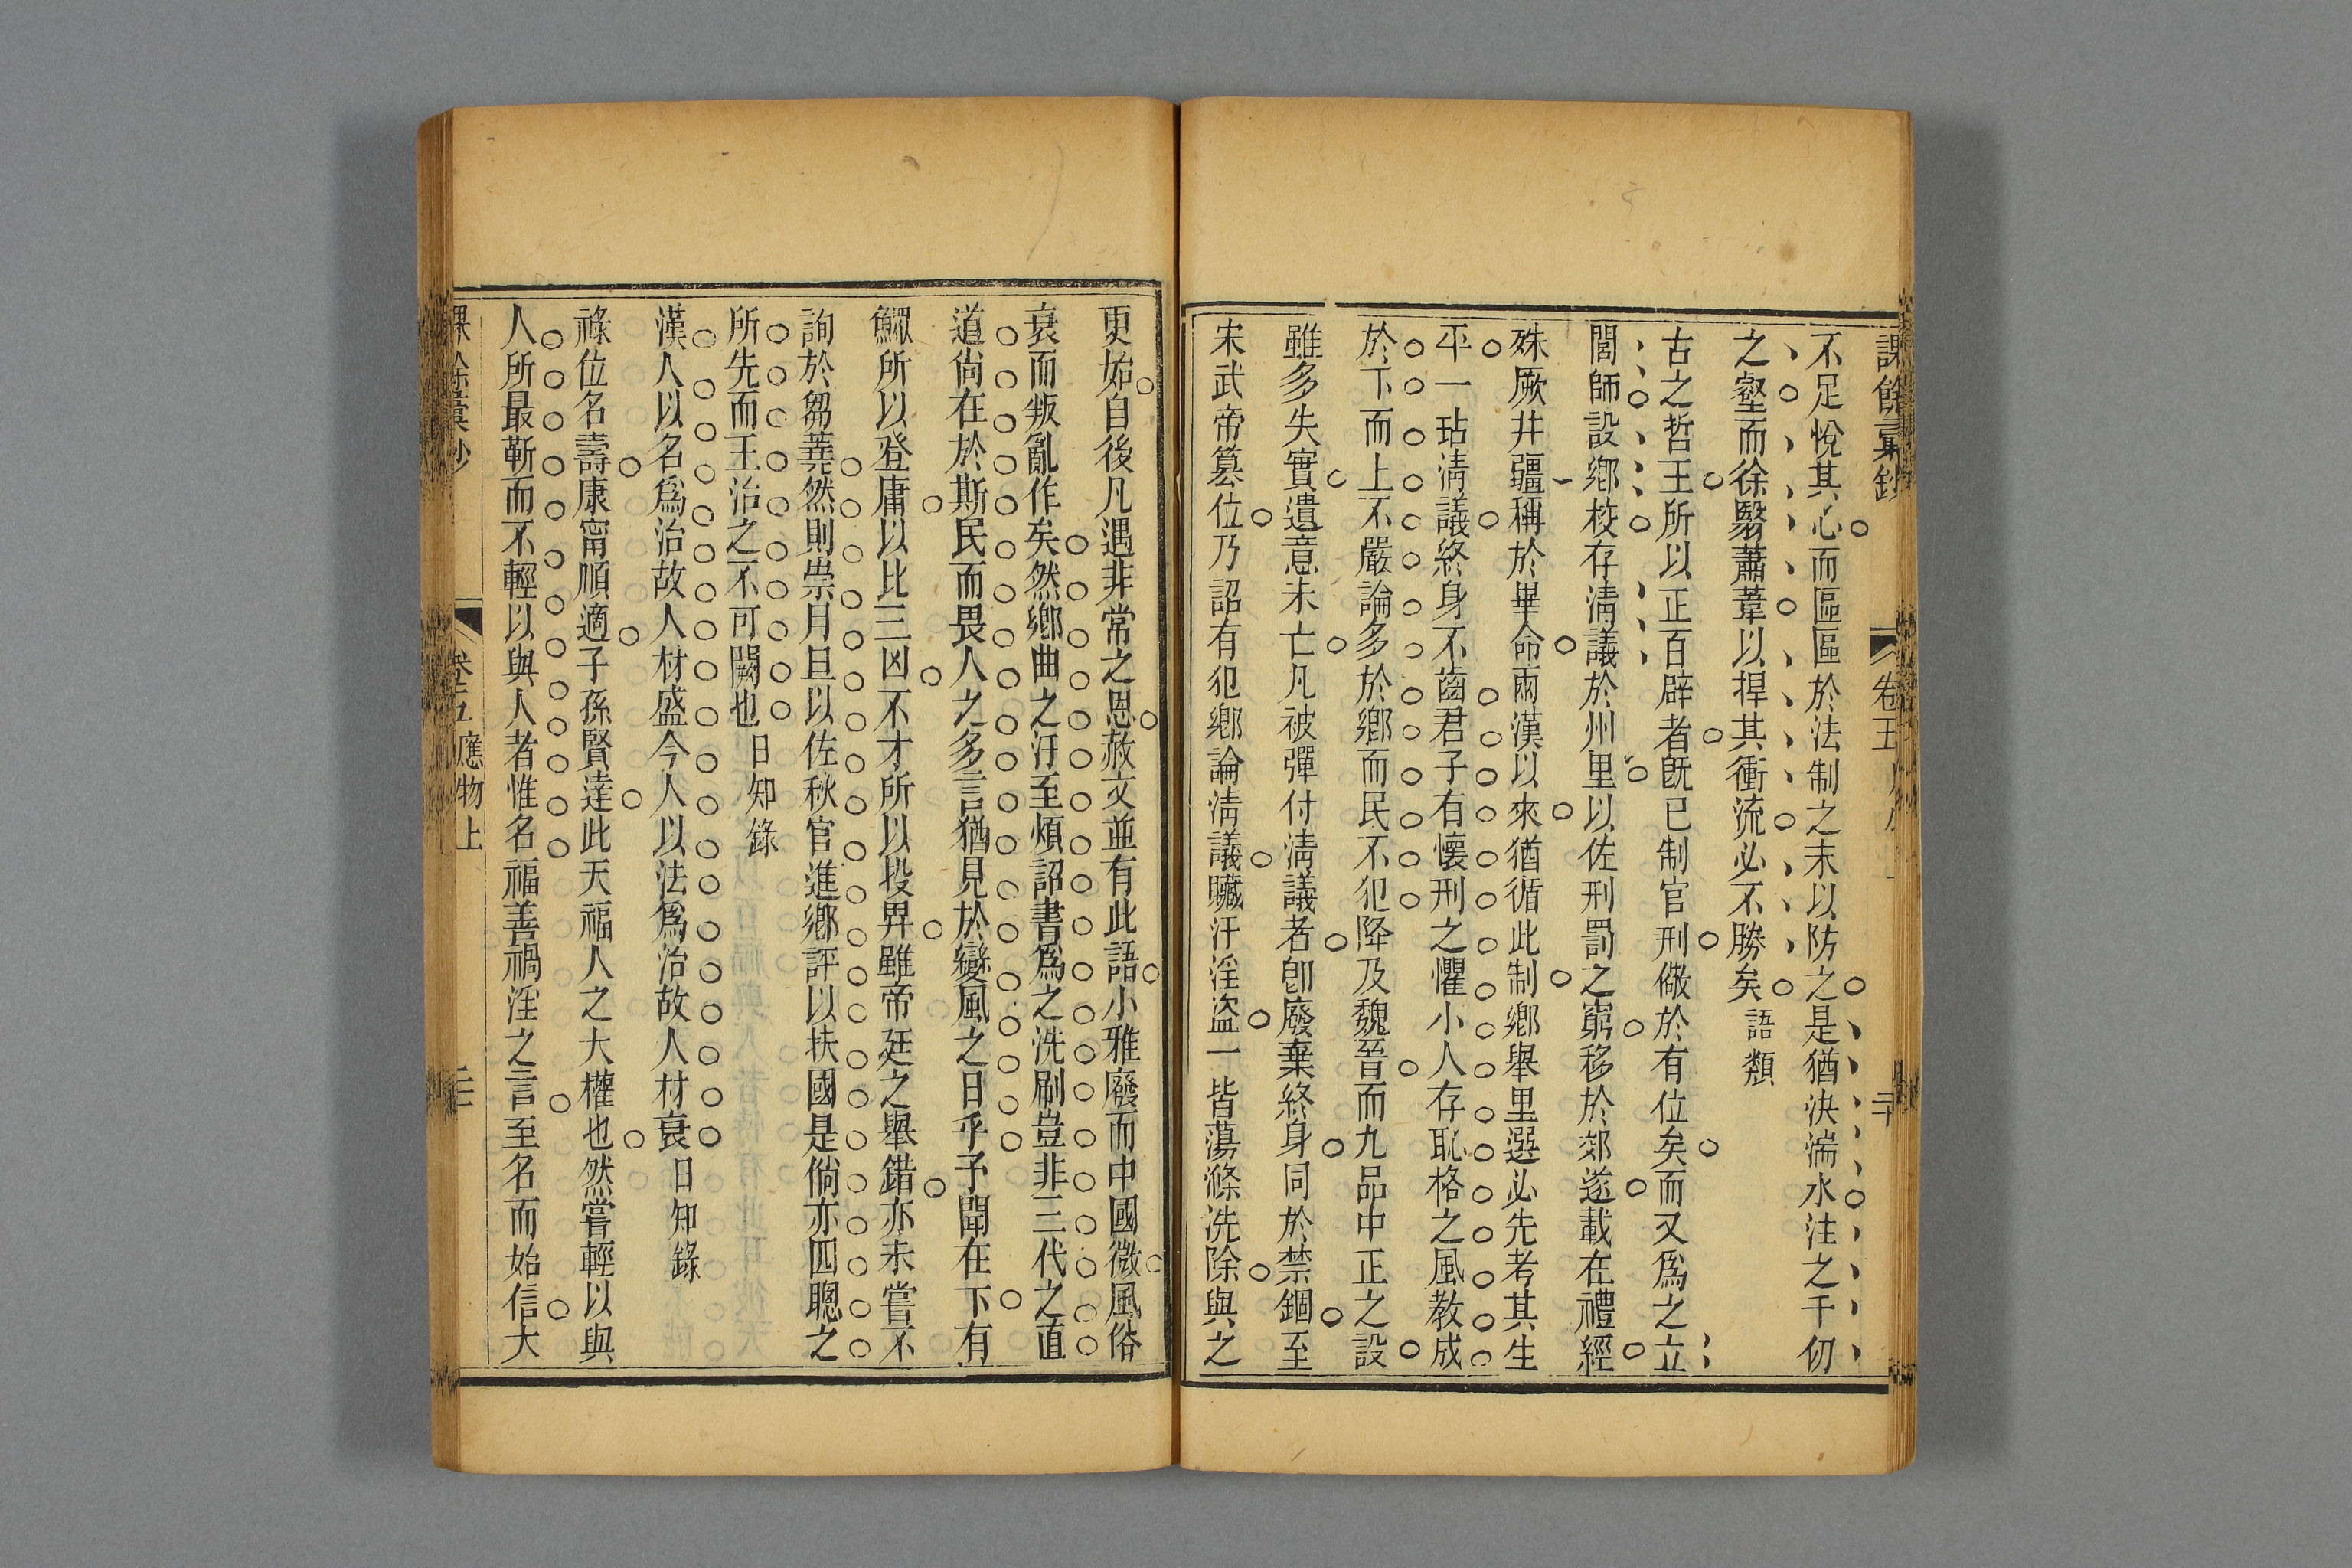 課餘彙鈔 卷五 二十
不足悅其心而區區於法制之末以防之是猶決湍水注之千仞
之壑而徐翳蕭葦以捍其衝流必不勝矣 語類
古之哲王所以正百辟者既已制官刑儆於有位矣而又爲之立
閭師設鄉校存淸議於州里以佐刑罰之窮移於郊遂載在禮經
殊厥井疆稱於畢命兩漢以來猶循此制鄉舉里選必先考其生
平一玷淸議終身不齒君子有懷刑之懼小人存恥格之風教成
於下而上不嚴論多於鄉而民不犯降及魏晉而九品中正之設
雖多失實遺意未亡凡被彈付淸議者卽廢棄終身同於禁錮至
宋武帝篡位乃詔有犯鄉論淸議贓汙淫盜一皆蕩滌洗除與之
更始自後凡遇非常之恩赦文並有此語小雅廢而中國微風俗
衰而叛亂作矣然鄉曲之汙至煩詔書爲之洗刷豈非三代之直
道尙在於斯民而畏人之多言猶見於變風之日乎予聞在下有
鰥所以登庸以比三凶不才所以投畀雖帝廷之舉錯亦未嘗不
詢於芻蕘然則崇月旦以佐秋官進鄉評以扶國是倘亦四聰之
所先而王治之不可闕也 日知錄
漢人以名爲治故人材盛今人以法爲治故人材衰 日知錄
祿位名壽康甯順適子孫賢達此天福人之大權也然嘗輕以與
人所最靳而不輕以與人者惟名福善禍淫之言至名而始信大
卷五 應物上